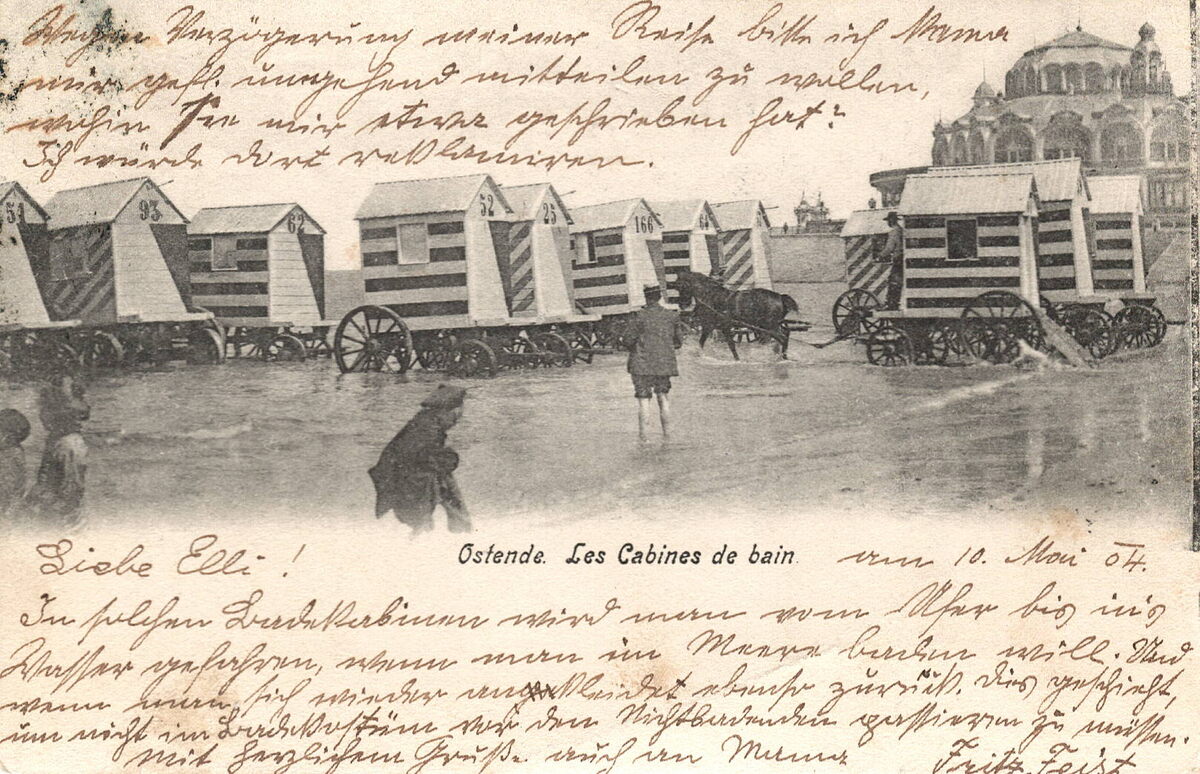 Wegen Verzögerung meiner Reise bitte ich Mama
mir gefl. umgehend mitteilen zu wollen,
wohin Sie mir etwa geschrieben hat?
Ich würde dort reklamiren.
51
93
62
52
25
166
Ostende. Les Cabines de bain.
Liebe Elli! am 10. Mai 04.
In solchen Badekabinen wird man vom Ufer bis in's
Wasser gefahren, wenn man im Meere baden will. Und
wenn man sich wieder angekleidet ebenso zurück. Dies geschieht,
um nicht im Badekostüm vor den Nichtbadenden passieren zu müssen.
Mit herzlichem Gruße auch an Mama
Fritz Feist